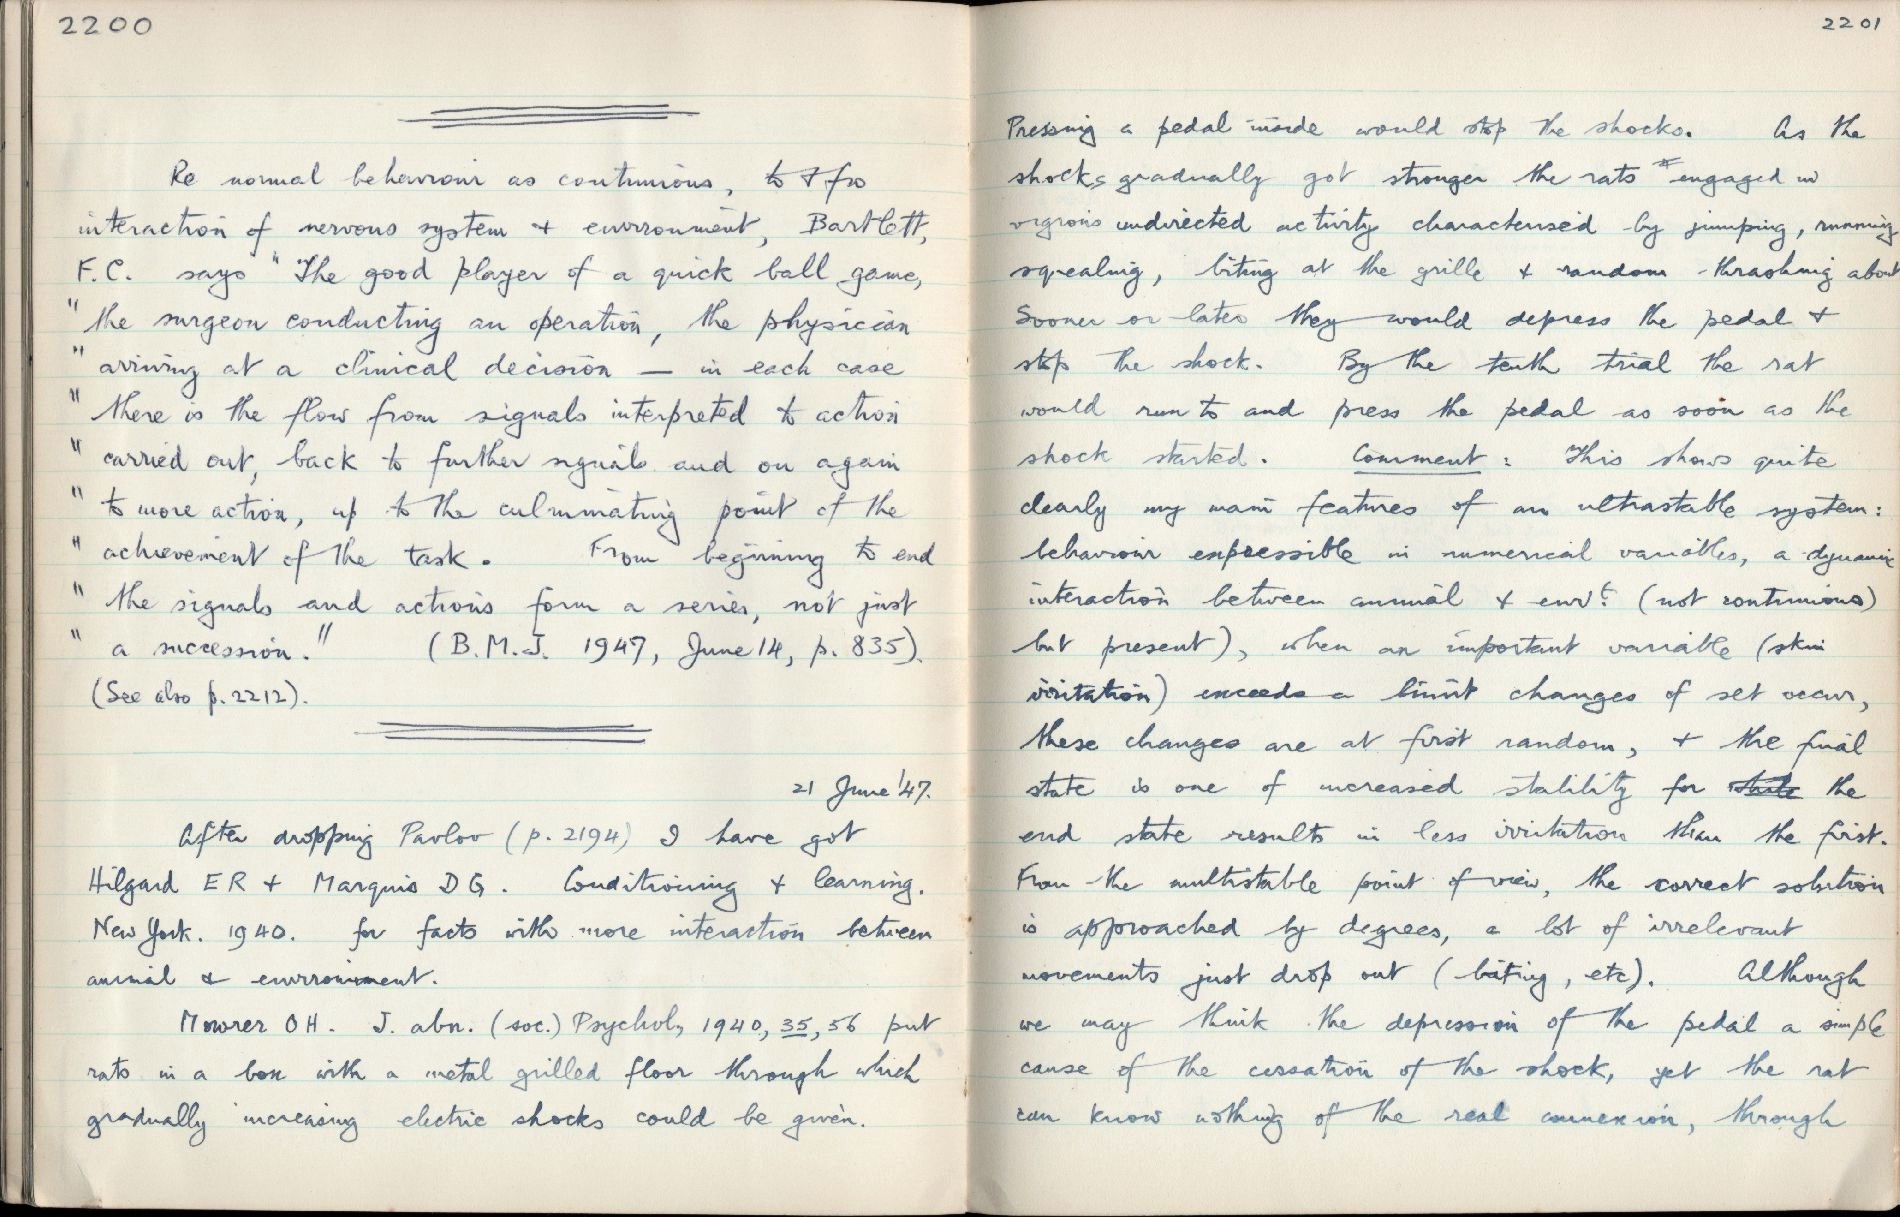 2200
Re normal behaviour as continuous, to & fro
interaction of nervous system & environment, Bartlett,
F.C. says " "The good player of a quick ball game,
" the surgeon conducting an operation, the physician
" arriving at a clinical decision — in each case
" there is the flow from signals interpreted to action
" carried out, back to further signals and on again
" to more action, up to the culminating point of the
" achievement of the task. From beginning to end
" the signals and actions form a series, not just
" a succession." (B.M.J. 1947, June 14, p. 835).
(See also p. 2212).
21 June '47.
After dropping Pavlov (p. 2194) I have got
Hilgard ER & Marquis DG. Conditioning & learning.
New York. 1940. for facts with more interaction between
animal & environment.
Mowrer OH. J. abn. (soc.) Psychol, 1940, 35, 56 put
rats in a box with a metal grilled floor through which
gradually increasing electric shocks could be given.
2201
Pressing a pedal inside would stop the shocks. As the
shocks gradually got stronger the rats engaged in
vigrous undirected activity characterised by jumping, running
squealing, biting at the grille & random thrashing about
Sooner or later they would depress the pedal &
stop the shock. By the tenth trial the rat
would run to and press the pedal as soon as the
shock started. Comment: This shows quite
clearly my main features of an ultrastable system:
behaviour expressible in numerical variables, a dynamic
interaction between animal & envt. (not continuous)
but present), when an important variable (skin
irritation) exceeds a limit changes of set occur,
these changes are at first random, & the final
state is one of increased stability for the
end state results in less irritation than the first.
From the multistable point of view, the correct solution
is approached by degrees, a lot of irrelevant
movements just drop out (biting, etc). Although
we may think the depression of the pedal a simple
cause of the cessation of the shock, yet the rat
can know nothing of the real connexion, through